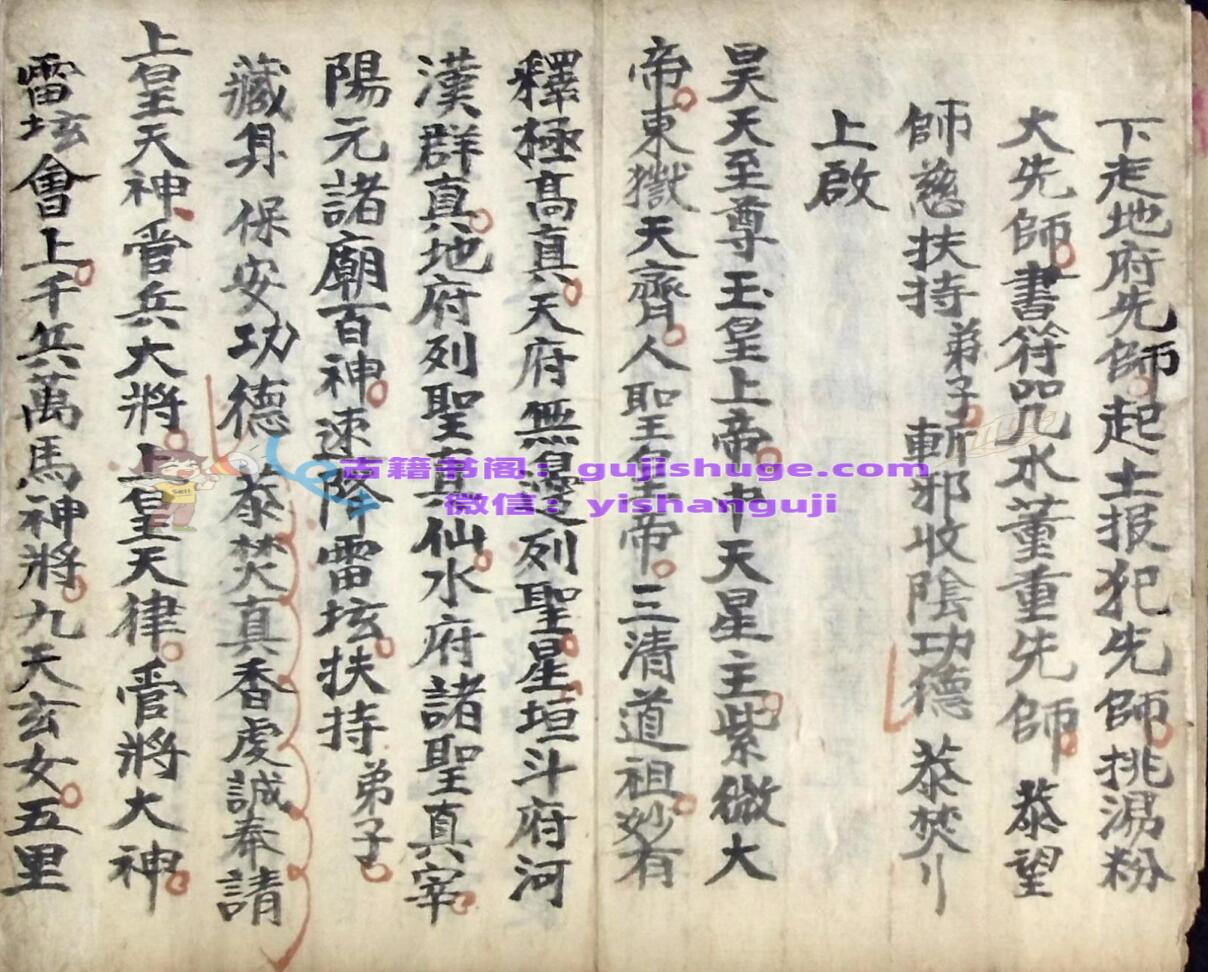 下走地府先師起土报犯先師挑湯粉
火先師書符咒水董重先師恭望
師慈扶持弟子斬邪收陰功德 恭焚〢
上啟
昊天至尊玉皇上帝中天星主紫微大
帝東嶽天齊人聖王皇帝三清道祖妙有
釋極高真天府無邊列聖星垣斗府河
漢群真地府列聖真仙水府諸聖真宰
陽元諸廟百神速降雷坛扶持弟子
藏身保安功德 恭焚真香虔誠奉請
上皇天神管兵大將上皇天律管將大神
雷坛會上千兵萬馬神將九天玄女五里
古籍书阁：gujishuge.com
微信：yishanguji